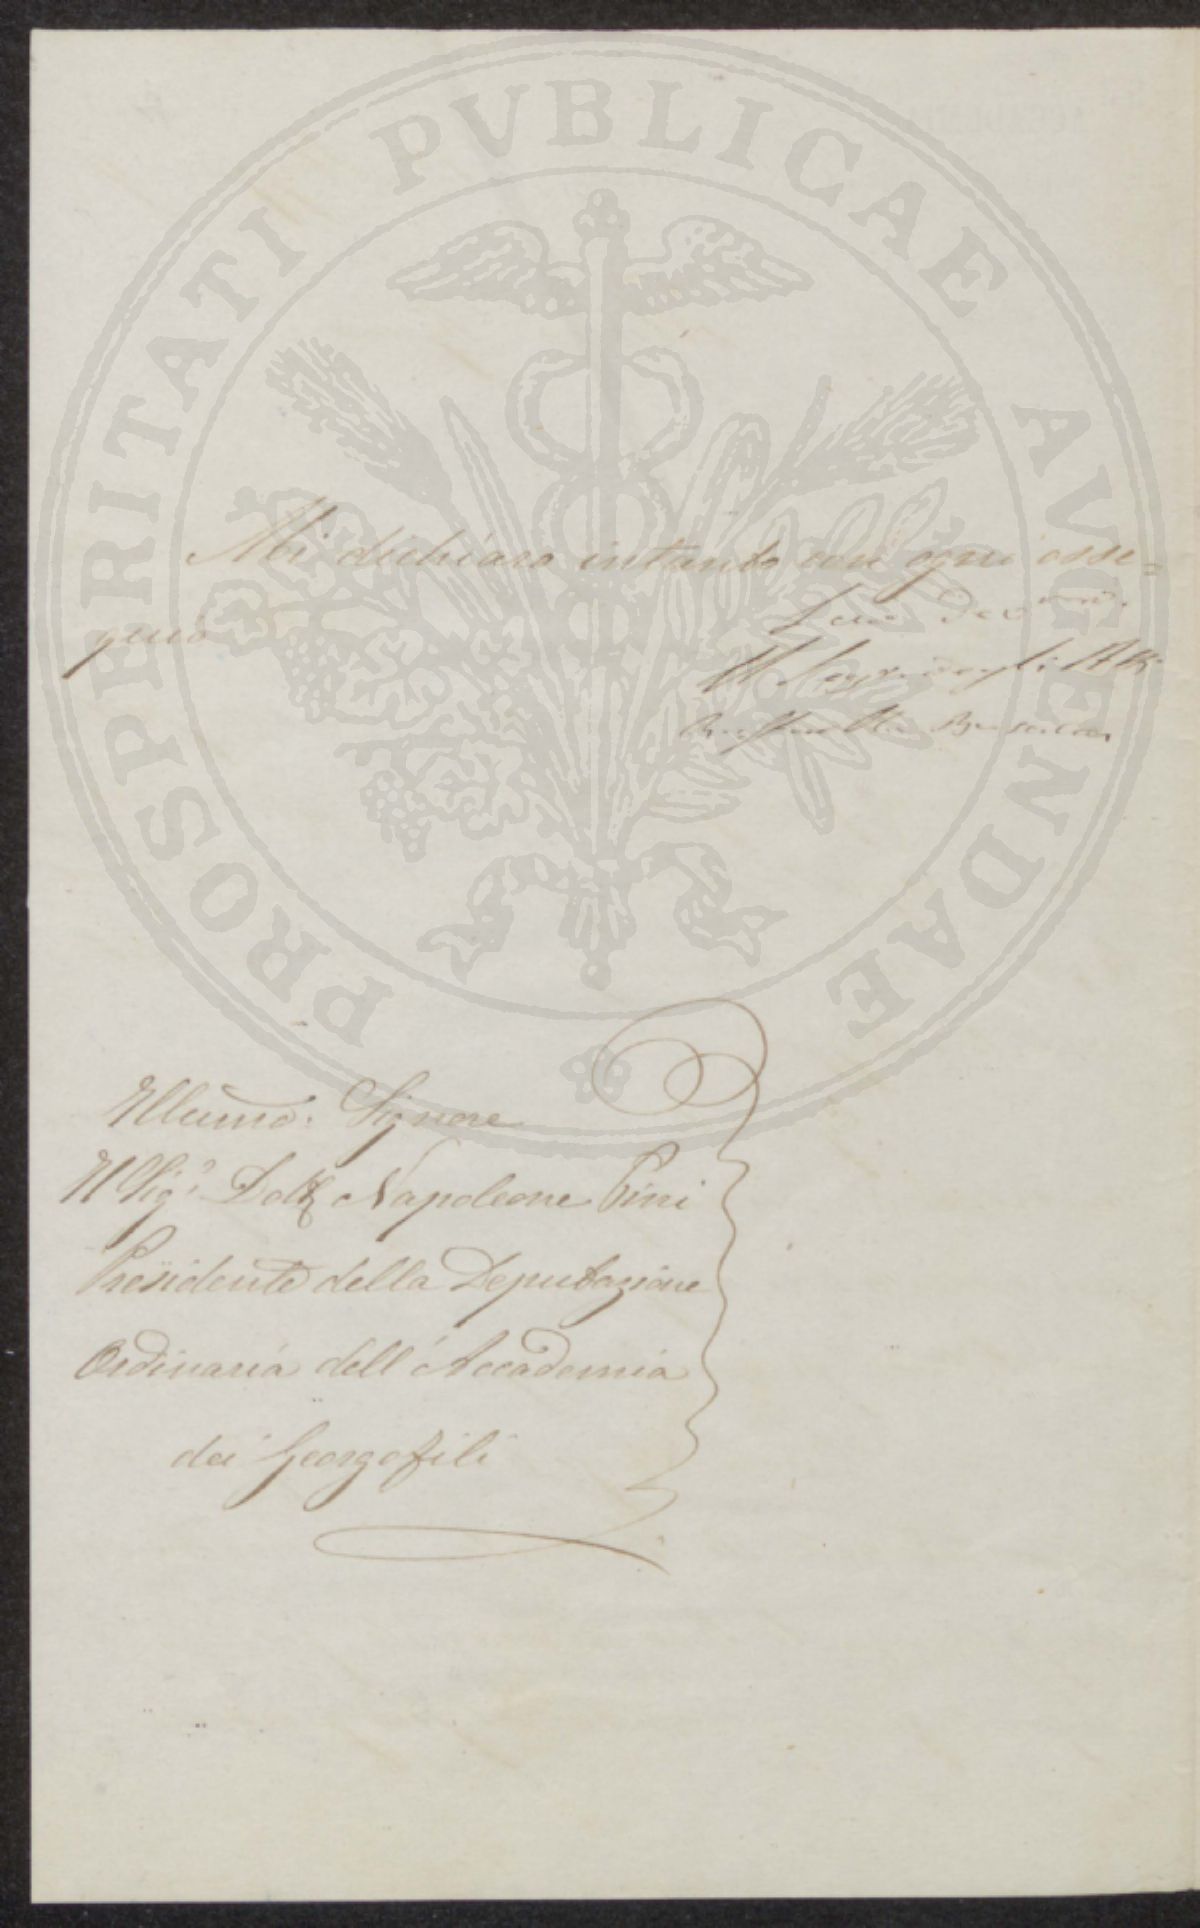 PROSPERITATI PVBLICAE AVGENDAE
Mi dichiaro intanto con ogni osse=
quio
Devmo.
Il Segr. degli Atti
Illumo. Signore
Il Sigr. Dott. Napoleone Pini
Presidente della Deputazione
Ordinaria dell'Accademia
dei Georgofili